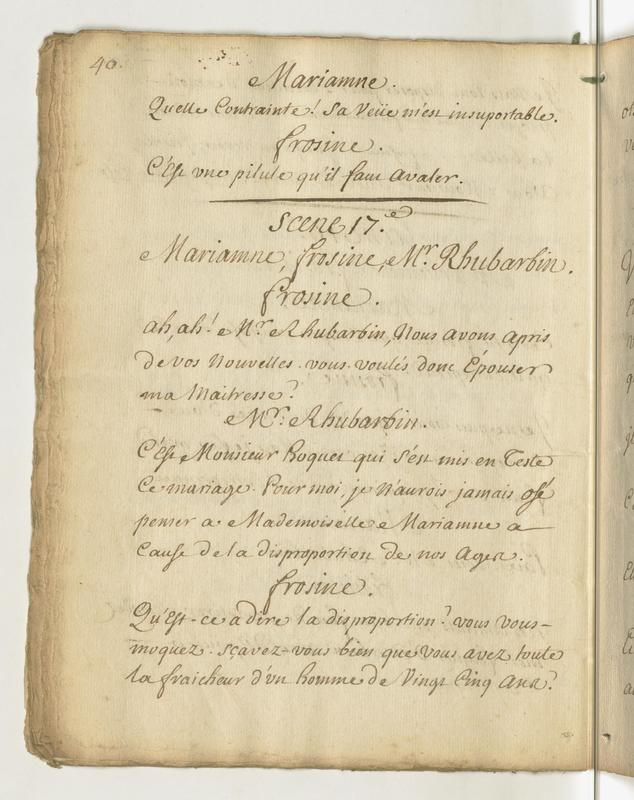 40.
Mariamne.
Quelle Contrainte! Sa Veüe m'est insuportable.
frosine.
C'Est une pilule qu'il faut avaler.
Scene 17.e
Mariamne, frosine, Mr. Rhubarbin.
frosine.
ah, ah! Mr. Rhubarbin, Nous avons apris
de vos Nouvelles. vous voulés donc Épouser
ma Maitresse?
Mr. Rhubarbin.
C'Est Monsieur hoquet qui s'est mis en Teste
Ce mariage. Pour moi, je n'aurois jamais osé
penser a Mademoiselle Mariamne a
Cause de la disproportion de nos Ages.
frosine.
Qu'Est-ce a dire la disproportion? vous vous-
moquez. sçavez-vous bien que vous avez toute
la fraicheur d'un homme de Vingt Cinq Ans?